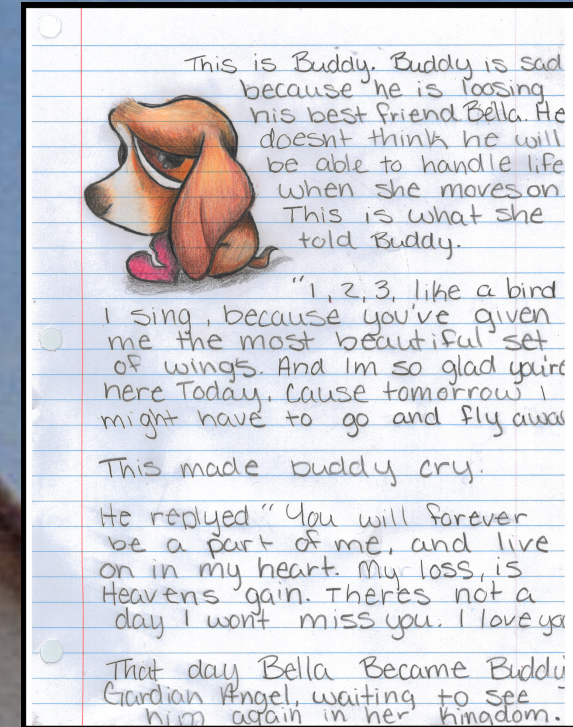 This is Buddy. Buddy is sad
because he is loosing
his best friend Bella. He
doesnt think he will
be able to handle life
when she moves on
This is what she
told Buddy.
"1, 2, 3, like a bird
I sing, because you've given
me the most beautiful set
of wings. And Im so glad you're
here Today, Cause tomorrow I
might have to go and fly away
This made buddy cry.
He replyed "You will forever
be a part of me, and live
on in my heart. My loss, is
Heavens gain. Theres not a
day I wont miss you. I love
That day Bella Became
Gardian Angel, waiting to see
him again in her Kingdom.